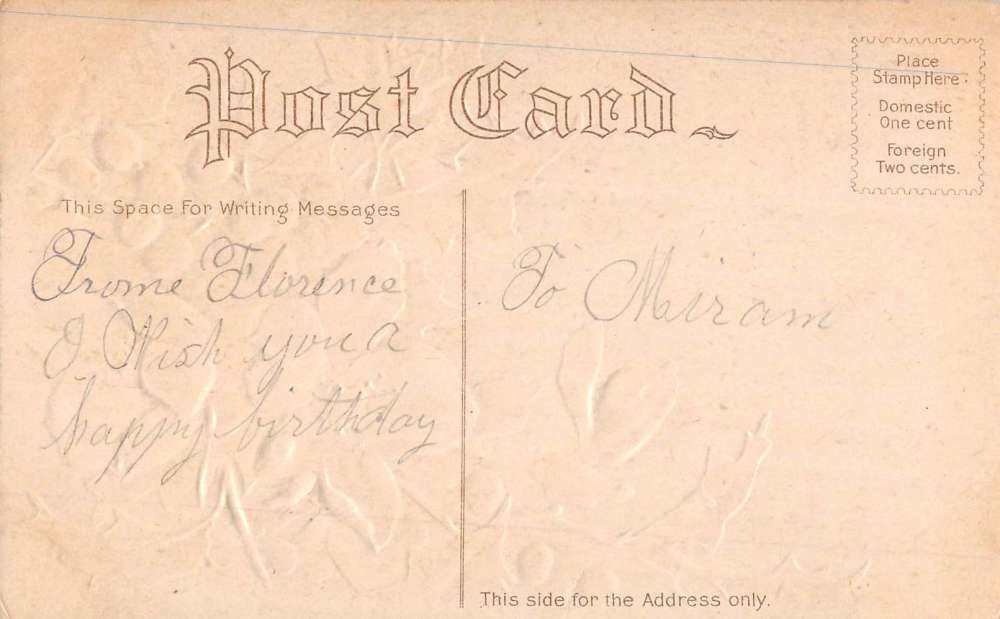 Post Card
Place
Stamp Here
Domestic
One cent
Foreign
Two cents.
This Space For Writing Messages
Frome Florence
I Wish you a
happy birthday
To Miram
This side for the Address only.